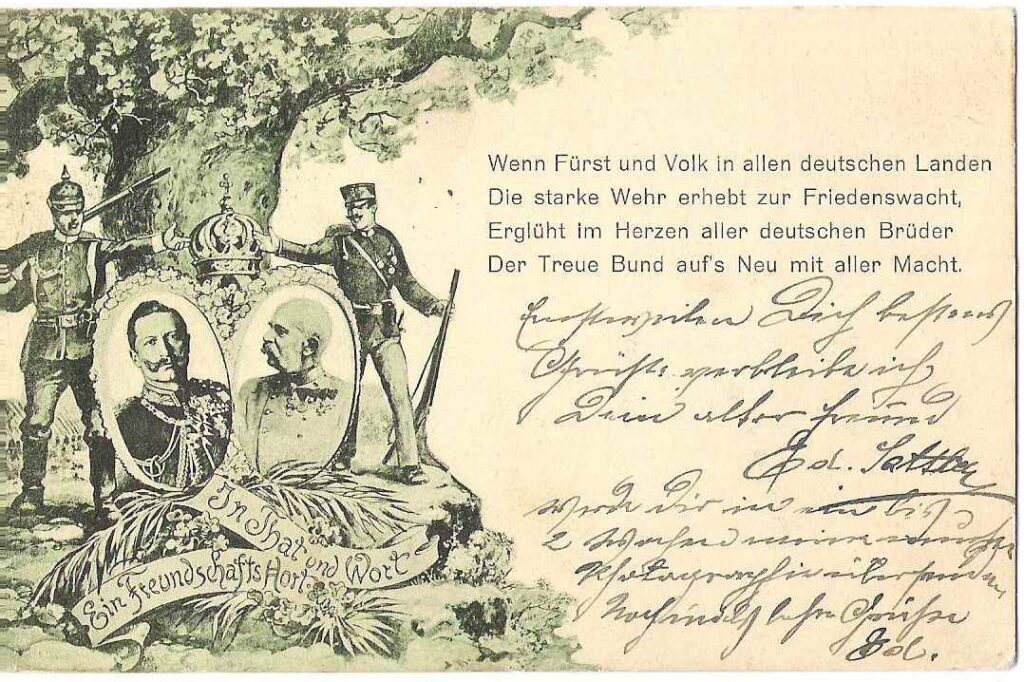 Wenn Fürst und Volk in allen deutschen Landen
Die starke Wehr erhebt zur Friedenswacht,
Erglüht im Herzen aller deutschen Brüder
Der Treue Bund auf's Neu mit aller Macht.
Einstweilen Dich bestens
verbleibe ich
Dein alter Freund
Ed. Sattler
werde Dir in ein bis
2 Wochen meine
Photographie übersenden
Nochmals Grüße
Ed.
In That und Wort
Ein Freundschafts Hort